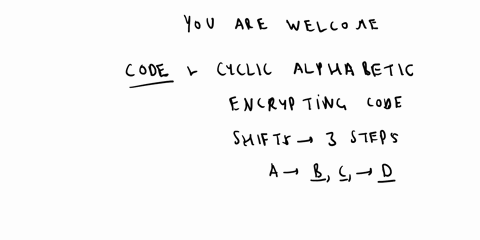 YOU ARE WELCOME
CODE → CYCLIC ALPHABETIC
ENCRYPTING CODE
SHIFTS → 3 STEPS
A → B, C, → D